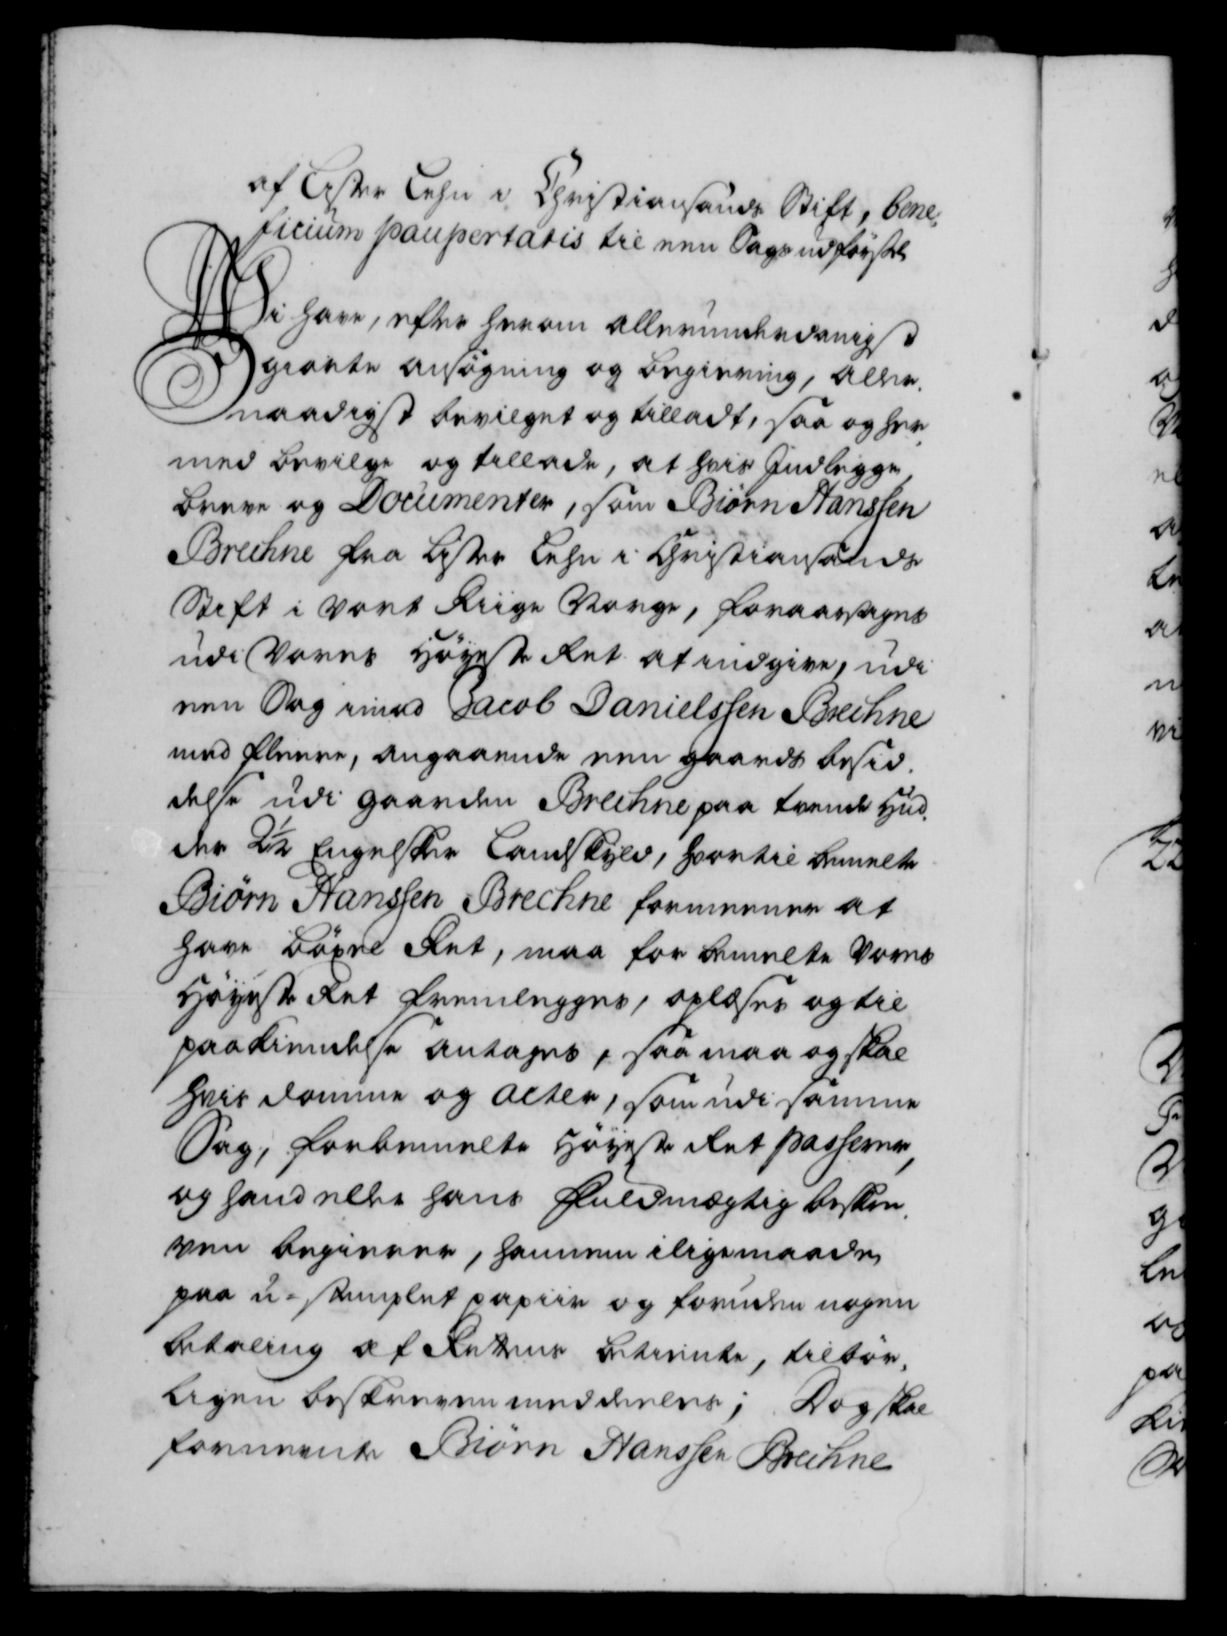 af Lister Lehn i Christiansands Stift, bene-
ficium paupertatis til een Sags udførsel
Wi have, efter herom allerunderdanigst
giorte ansøgning og begiering, aller-
naadigst bevilget og tilladt, saa og her-
med bevilge og tillade, at hvis Indlegge,
breve og Documenter, som Biörn Hanssen
Brechne fra Lister Lehn i Christiansands
Stift i vort Riige Norge, foraarsages
udi Vores Höyeste Ret at indgive, udi
een Sag imod Jacob Danielssen Brechne
med fleere, angaaende een gaards besid-
delse udi gaarden Brechne paa trende Hud-
der 2½ Engelsker Landskyld, hvortil bemelte
Biörn Hanssen Brechne formeener at
have böxel Ret, maa for bemelte Vores
Höyeste Ret fremlegges, oplæses og til
paakiendelse antages, saa maa og skal
hvis domme og acter, som udi samme
Sag, forbemelte Höyeste Ret passerer,
og hand eller hans Fuldmægtig beskre-
ven begierer, hannem iligemaade
paa u-stemplet papiir og foruden nogen
betaling af Rettens betiente, tilbör-
ligen beskreven meddeeles; Dog skal
formeente Biörn Hanssen Brechne